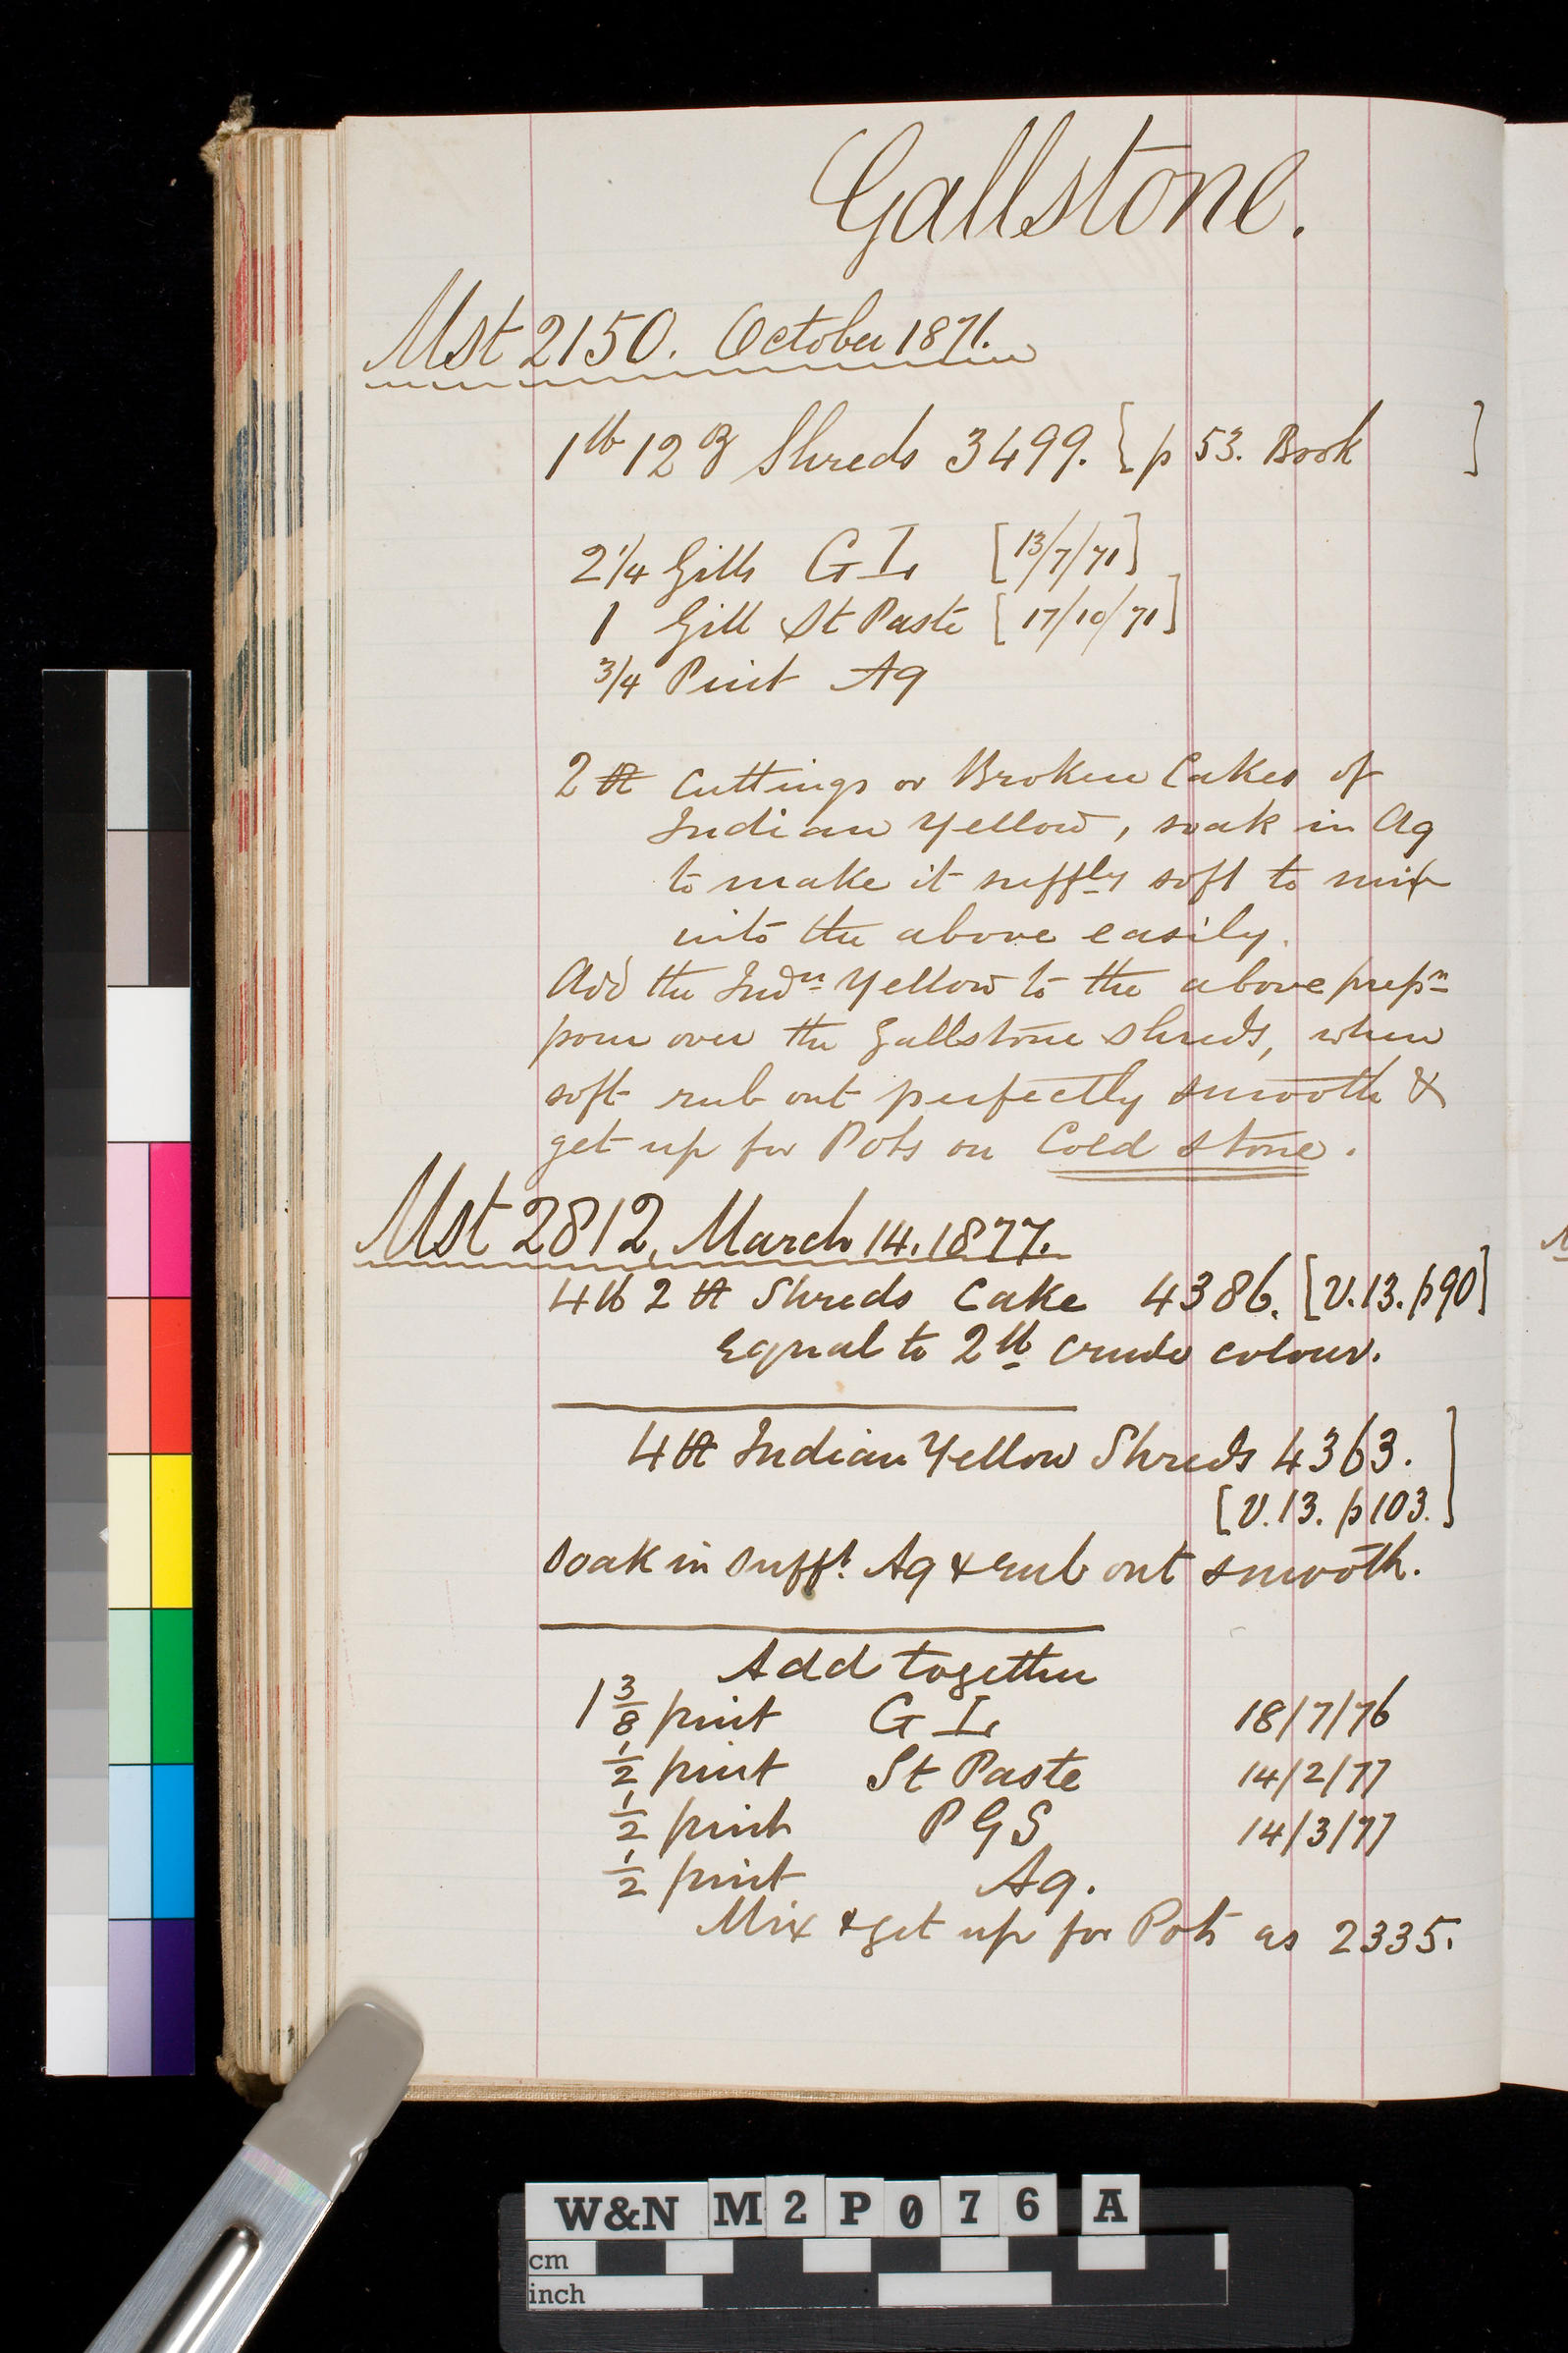 Gallstone.
Mst 2150. October 1871.
1lb 12 oz Shreds 3499. [p 53. Book ]
2 1/4 Gills G I. [13/7/71]
1 Gill St Paste [17/10/71]
3/4 Pint Aq
2 ℔ Cuttings or Broken Cakes of
Indian Yellow, soak in Aq
to make it suffly soft to mix
into the above easily.
Add the Indn Yellow to the above prepn
pour over the Gallstone shreds, when
soft rub out perfectly smooth &
get up for Pots on Cold stone.
Mst 2812, March 14. 1877.
4lb 2 ℔ Shreds Cake 4386. [V. 13. p90]
Equal to 2 lb crude colour.
4 ℔ Indian Yellow Shreds 4363.
[V. 13. p103.]
Soak in sufft Aq & rub out smooth.
Add together
1 3/8 pint G I. 18/7/76
1/2 pint St Paste 14/2/77
1/2 pint P G S 14/3/77
1/2 pint Aq.
Mix & get up for Pots as 2335.
W&N M2P076 A
cm
inch